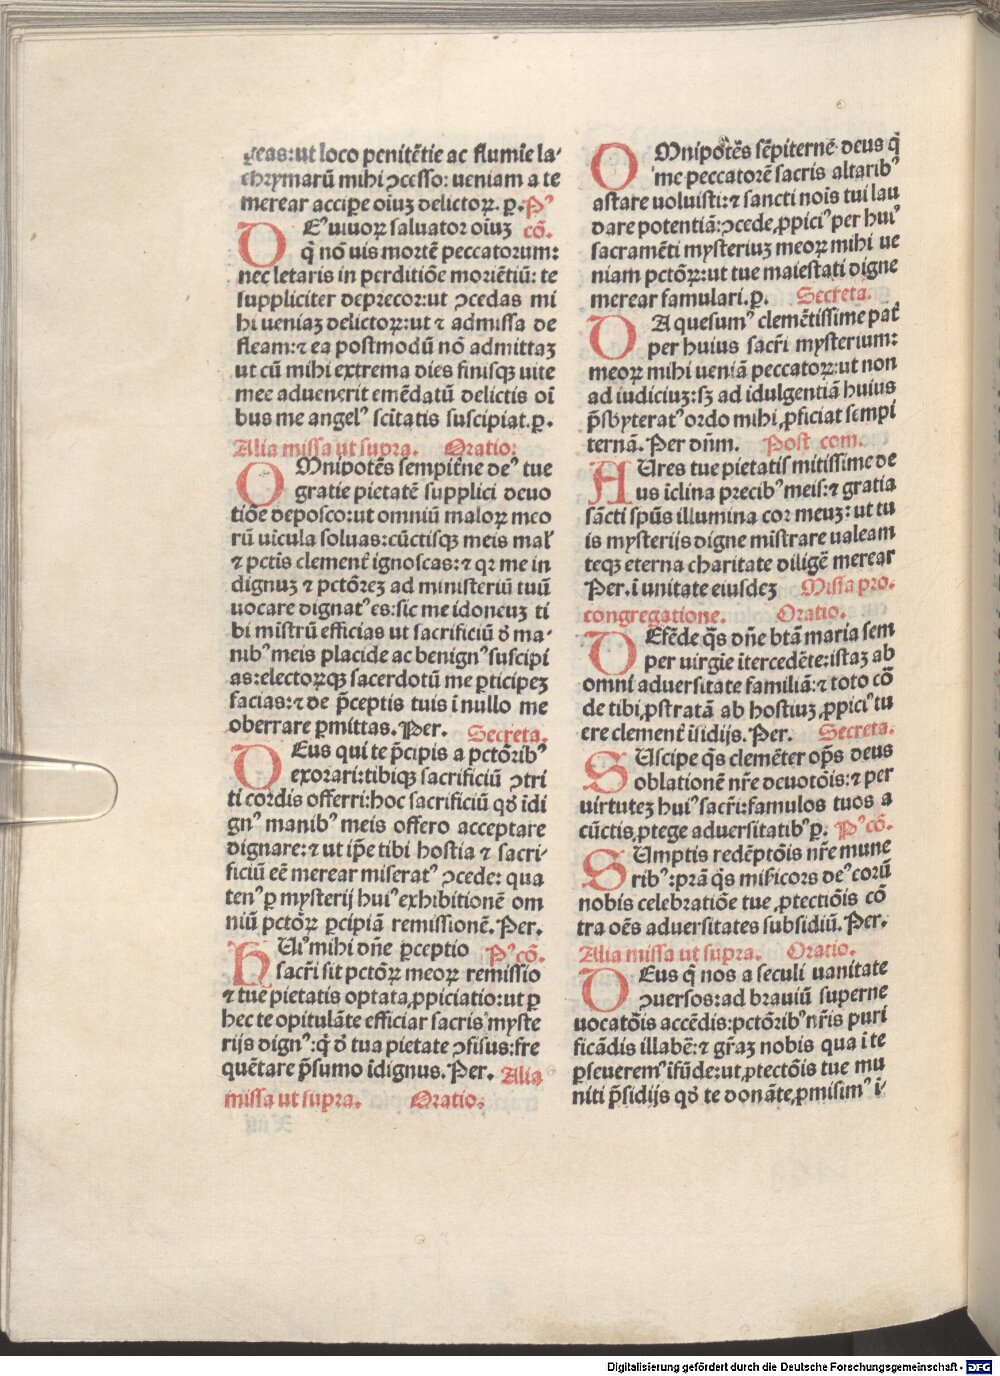 geas:ut loco penitētie ac flumīe la-
chrymarū mihi ↄcesso: ueniam a te
merear accipe oīuꝫ delictoꝝ. p. P⁹
DE⁹ uiuoꝝ saluator oīuꝫ cō.
q̄ nō uis mortē peccatorum:
nec letaris in perditiōe moriētiū: te
suppliciter deprecor: ut ↄcedas mi
hi ueniaꝫ delictoꝝ: ut ⁊ admissa de
fleam: ⁊ ea postmodū nō admittaꝫ
ut cū mihi extrema dies finisqꝫ uite
mee aduenerit emēdatū delictis oī
bus me angel⁹ scītatis suscipiat. p.
Alia missa ut supra. Oratio:
OMnipotēs sempit̄ne de⁹ tue
gratie pietatē supplici deuo
tiōe deposco: ut omniū maloꝝ meo
rū uīcula soluas: cūctisqꝫ meis mal'
⁊ pctīs clement̄ ignoscas: ⁊ qꝛ me in
dignuꝫ ⁊ pctōreꝫ ad ministeriū tuū
uocare dignat⁹ es: sic me idoneuꝫ ti
bi mīstrū efficias ut sacrificiū d̄ ma-
nib⁹ meis placide ac benign⁹ suscipi
as: electoꝝqꝫ sacerdotū me ꝑticipeꝫ
facias: ⁊ de p̄ceptis tuis ī nullo me
oberrare ꝑmittas. Per. Secreta.
DEus qui te p̄cipis a pctōrib⁹
exorari: tibiqꝫ sacrificiū ↄtri
ti cordis offerri: hoc sacrificiū qd̄ īdi
gn⁹ manib⁹ meis offero acceptare
dignare: ⁊ ut ip̄e tibi hostia ⁊ sacri-
ficiū eē merear miserat⁹ ↄcede: qua
ten⁹ ꝑ mysterij hui⁹ exhibitionē om
niū pctōꝝ ꝑcipiā remissionē. Per.
HUi⁹ mihi dn̄e ꝑceptio P⁹ cō.
sacr̄i sit pctōꝝ meoꝝ remissio
⁊ tue pietatis optata ꝓpiciatio: ut ꝑ
hec te opitulāte efficiar sacris myste
rijs dign⁹: q̄ d̄ tua pietate ↄfisus: fre
quētare p̄sumo īdignus. Per. Alia
missa ut supra. Oratio.
OMnipotēs sēpiternē deus q̄
me peccatorē sacris altarib⁹
astare uoluisti: ⁊ sancti nois tui lau
dare potentiā: ↄcede ꝓpici⁹ per hui⁹
sacramēti mysteriuꝫ meoꝝ mihi ue
niam pctōꝝ: ut tue maiestati digne
merear famulari. p. Secreta.
DA quesum⁹ clemētissime pat̄
per huius sacr̄i mysterium:
meoꝝ mihi ueniā peccatoꝝ: ut non
ad iudiciuꝫ: sꝫ ad idulgentiā huius
p̄sbyterat⁹ ordo mihi ꝓficiat sempi
ternā. Per dn̄m. Post com.
AUres tue pietatis mitissime de
us īclina precib⁹ meis: ⁊ gratia
sācti spūs illumina cor meuꝫ: ut tu
is mysterijs digne mīstrare ualeam
teqꝫ eterna charitate diligē merear
Per. ī unitate eiusdeꝫ Missa pro.
congregatione. Oratio.
DEfēde qs̄ dn̄e btā maria sem
per uirgīe ītercedēte: istaꝫ ab
omni aduersitate familiā: ⁊ toto cō
de tibi ꝓstratā ab hostiuꝫ ꝓpici⁹ tu
ere clement̄ īsidijs. Per. Secreta.
SUscipe qs̄ clemēter op̄s deus
oblationē nr̄e deuotōis: ⁊ per
uirtuteꝫ hui⁹ sacr̄i: famulos tuos a
cūctis ꝓtege aduersitatib⁹ p. P⁹ cō.
SUmptis redēptōis nr̄e mune
rib⁹: prā qs̄ misicors de⁹ corū
nobis celebratiōe tue ꝓtectiōis cō
tra oēs aduersitates subsidiū. Per.
Alia missa ut supra. Oratio.
DEus q̄ nos a seculi uanitate
ↄuersos: ad brauiū superne
uocatōis accēdis: pctōrib⁹ nr̄is puri
ficādis illabē: ⁊ gr̄aꝫ nobis qua ī te
ꝑseuerem⁹ īfūde: ut ꝓtectōis tue mu
niti p̄sidijs qd̄ te donāte ꝓmisim⁹ ī-
Digitalisierung gefördert durch die Deutsche Forschungsgemeinschaft - DFG